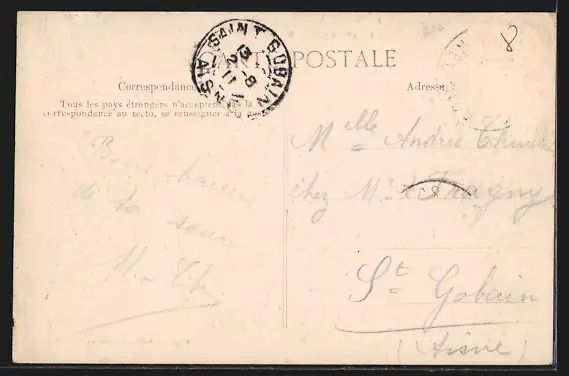 8
CARTE POSTALE
SAINT GOBAIN
AISNE
Correspondance
Adresse
Tous les pays étrangers n'acceptent pas la
correspondance au recto, se renseigner à la poste
Bons baisers
de ta sœur
M. Th.
Melle Andrée
chez Mr
St Gobain
(Aisne)